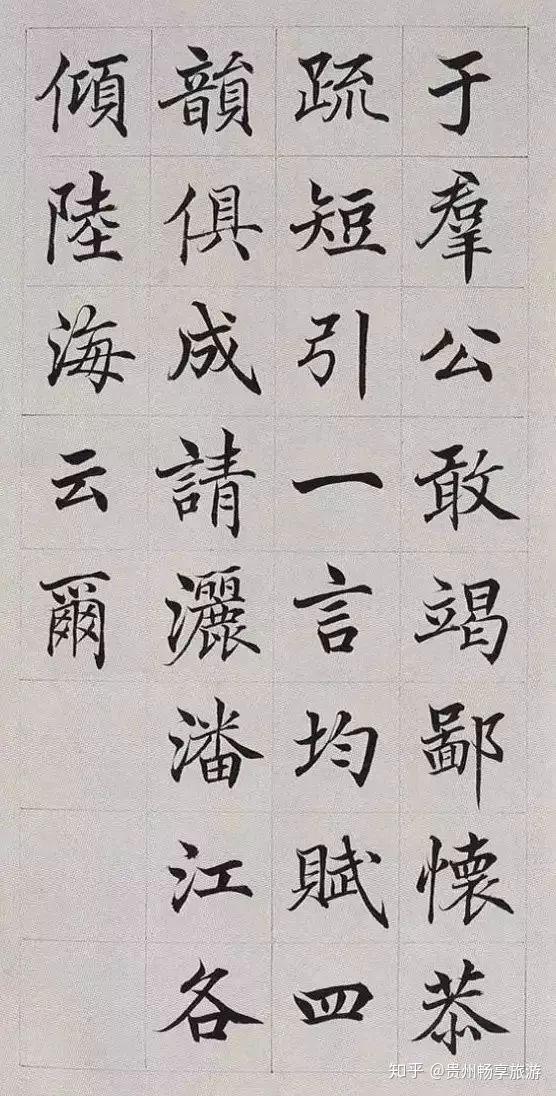 于羣公敢竭鄙懷恭
疏短引一言均賦四
韻俱成請灑潘江各
傾陸海云爾
知乎 @贵州畅享旅游